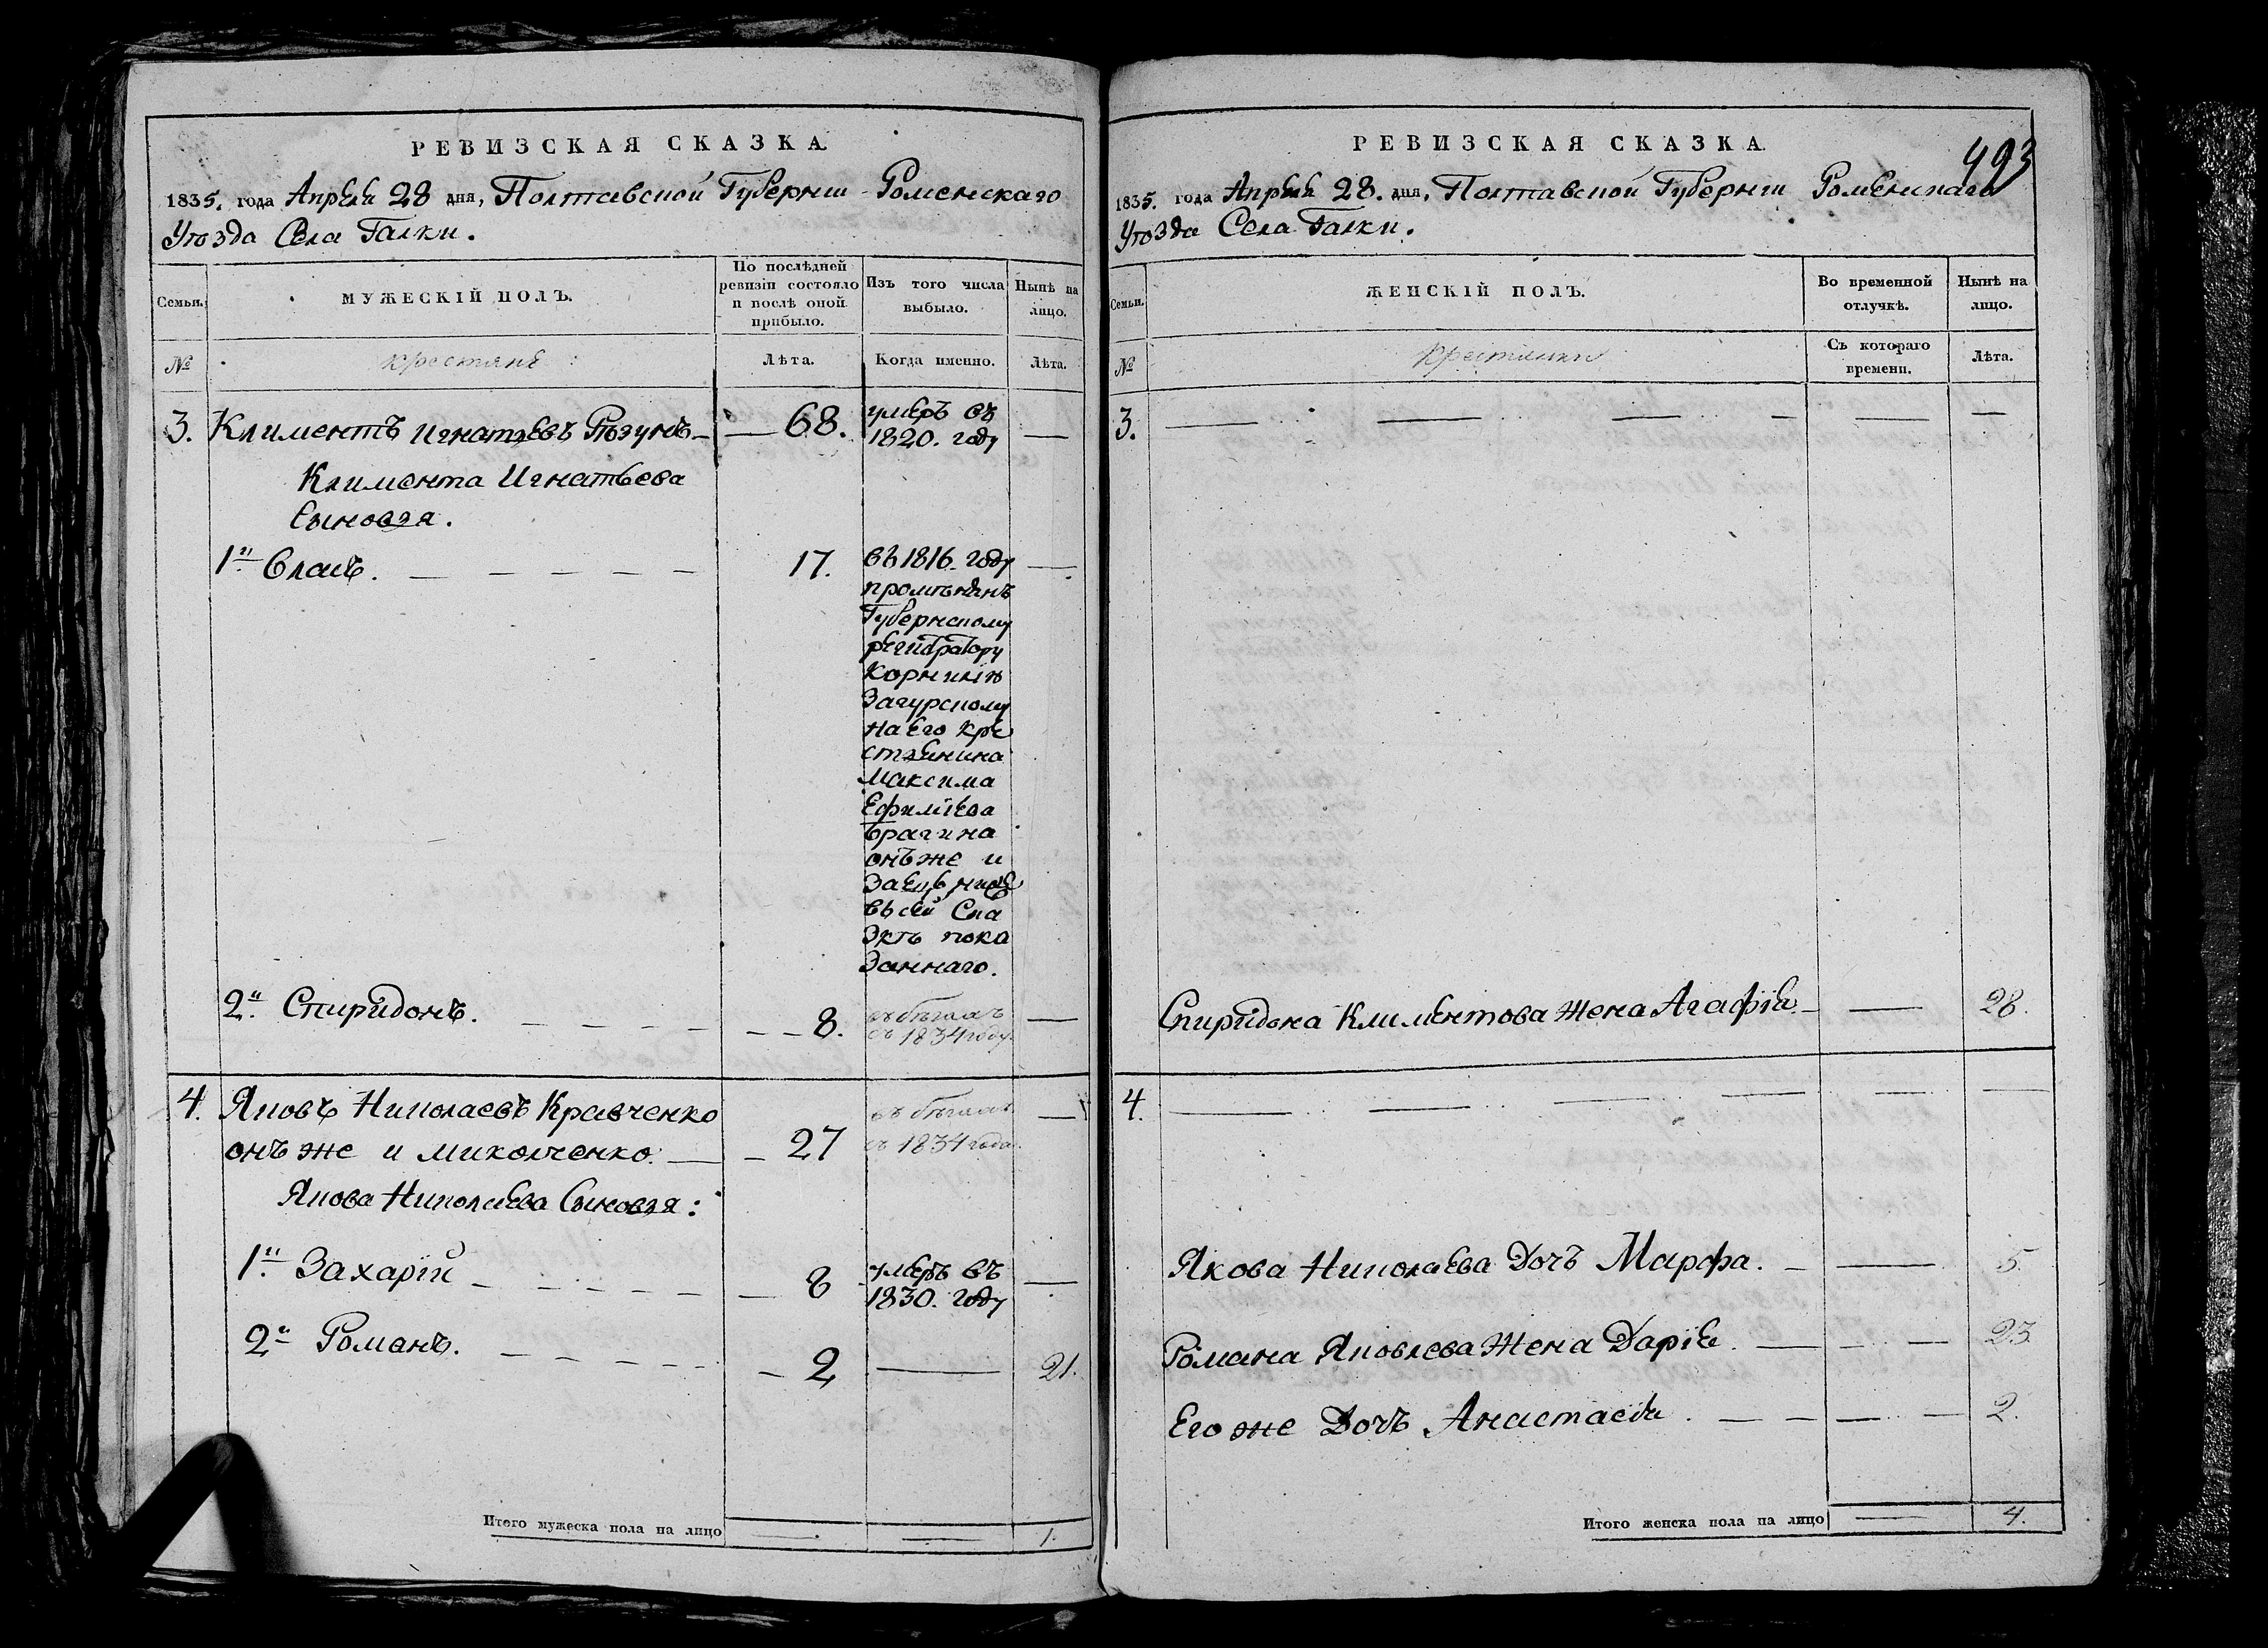 РЕВИЗСКАЯ СКАЗКА.
1835. года Апреля 28 дня, Полтавской Губернии Роменскаго
Уѣзда Села Галки.
Семьи.
МУЖЕСКІЙ ПОЛЪ.
По послѣдней ревизіи состояло и послѣ оной прибыло.
Изъ того числа выбыло.
Нынѣ на лицо.
№
крестяне
Лѣта.
Когда именно.
Лѣта.
3. Климентъ Игнатьевъ Рѣзунъ 68. умеръ въ
1820. году
Климента Игнатьева
Сыновья.
1й Власъ. 17. въ 1816. году
промѣнянъ
Губернскому
регистратору
Корнилію
Загурскому
на его кре
стьянина
Максима
Ефимьева
Брагина
онъ же и
въ сей Ска
зкѣ пока
заннаго.
2й Спиридонъ. 8. въ бѣгахъ
съ 1834 году
4. Яковъ Николаевъ Кравченко въ бѣгахъ
онъ же и Миколченко. 27 съ 1834 года.
Якова Николаева Сыновья:
1й Захарій 8 умеръ въ
1830. году
2й Романъ. 2 21.
Итого мужеска пола на лицо 1.
РЕВИЗСКАЯ СКАЗКА.
493
1835. года Апреля 28. дня, Полтавской Губернии Роменскаго
Уѣзда Села Галки.
Семьи.
ЖЕНСКІЙ ПОЛЪ.
Во временной отлучкѣ.
Нынѣ на лицо.
№
крестянки
Съ котораго времени.
Лѣта.
3.
Спиридона Климентова Жена Агафія 28.
4.
Якова Николаева Дочъ Марфа. 5.
Романа Яковлева Жена Дарія. 23.
Его же Дочъ Анастасія. 2.
Итого женска пола на лицо 4.